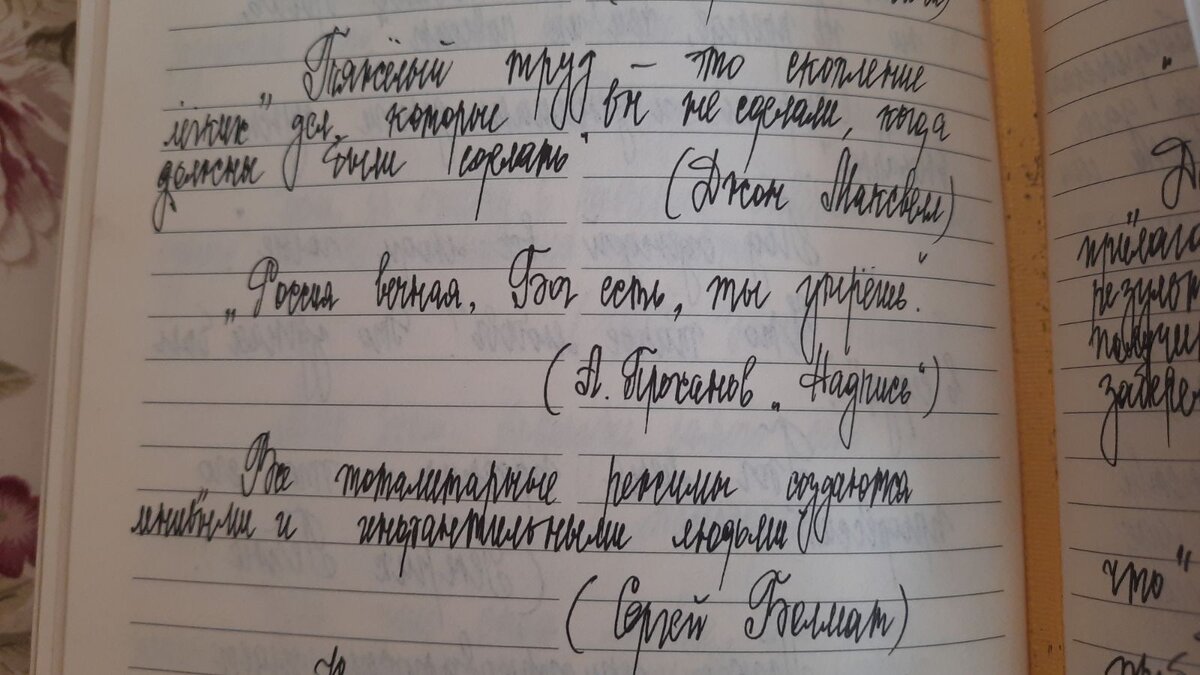 „Тяжёлый труд – это скопление
лёгких дел, которые вы не сделали, когда
должны были сделать"
(Джон Максвелл)
„Россия вечная, Бог есть, ты умрёшь."
(А. Проханов „Надпись")
„Все тоталитарные режимы создаются
ленивыми и инфантильными людьми"
(Сергей Белмат)
„
прилага
результ
получи
забере
что"